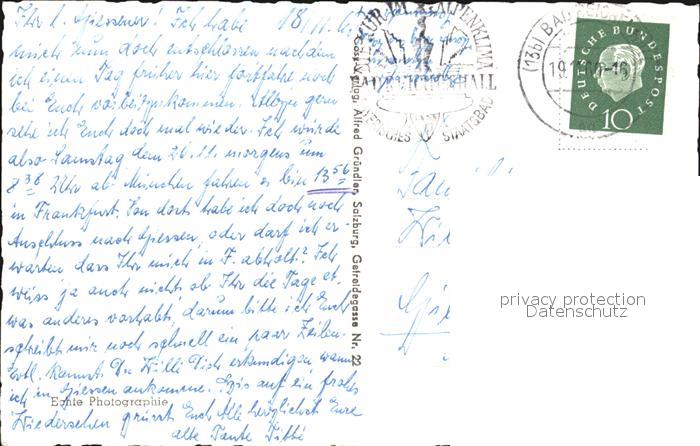 Ihr l. Giessener! Ich habe 18/11.
mich nun doch entschlossen nachdem
ich einen Tag früher hier fortfahre noch
bei Euch vorbeizukommen. Allzu gern
sehe ich Euch doch mal wieder. Ich würde
also Samstag dem 26.11. morgens um
8 38 Uhr ab München fahren u. bin 13 56
in Frankfurt. Von dort habe ich doch noch
Anschluss nach Giessen, oder darf ich er-
warten dass Ihr mich in F. abholt? Ich
weiss ja auch nicht ob Ihr die Tage et.
was anderes vorhabt, darum bitte ich Euch
schreibt mir noch schnell ein paar Zeilen.
Evtl. kannst Du Willi Dich erkundigen wann
ich in Giessen ankomme. Bis auf ein frohes
Wiedersehen grüsst Euch Alle herzlichst Eure
alte Tante Titti
Echte Photographie
Verlag Alfred Gründler, Salzburg, Getreidegasse Nr. 22
KUR IM ALPENKLIMA
BAD REICHENHALL
BAYERISCHES STAATSBAD
(13b) BAD REICHENHALL
DEUTSCHE BUNDESPOST
10
privacy protection
Datenschutz